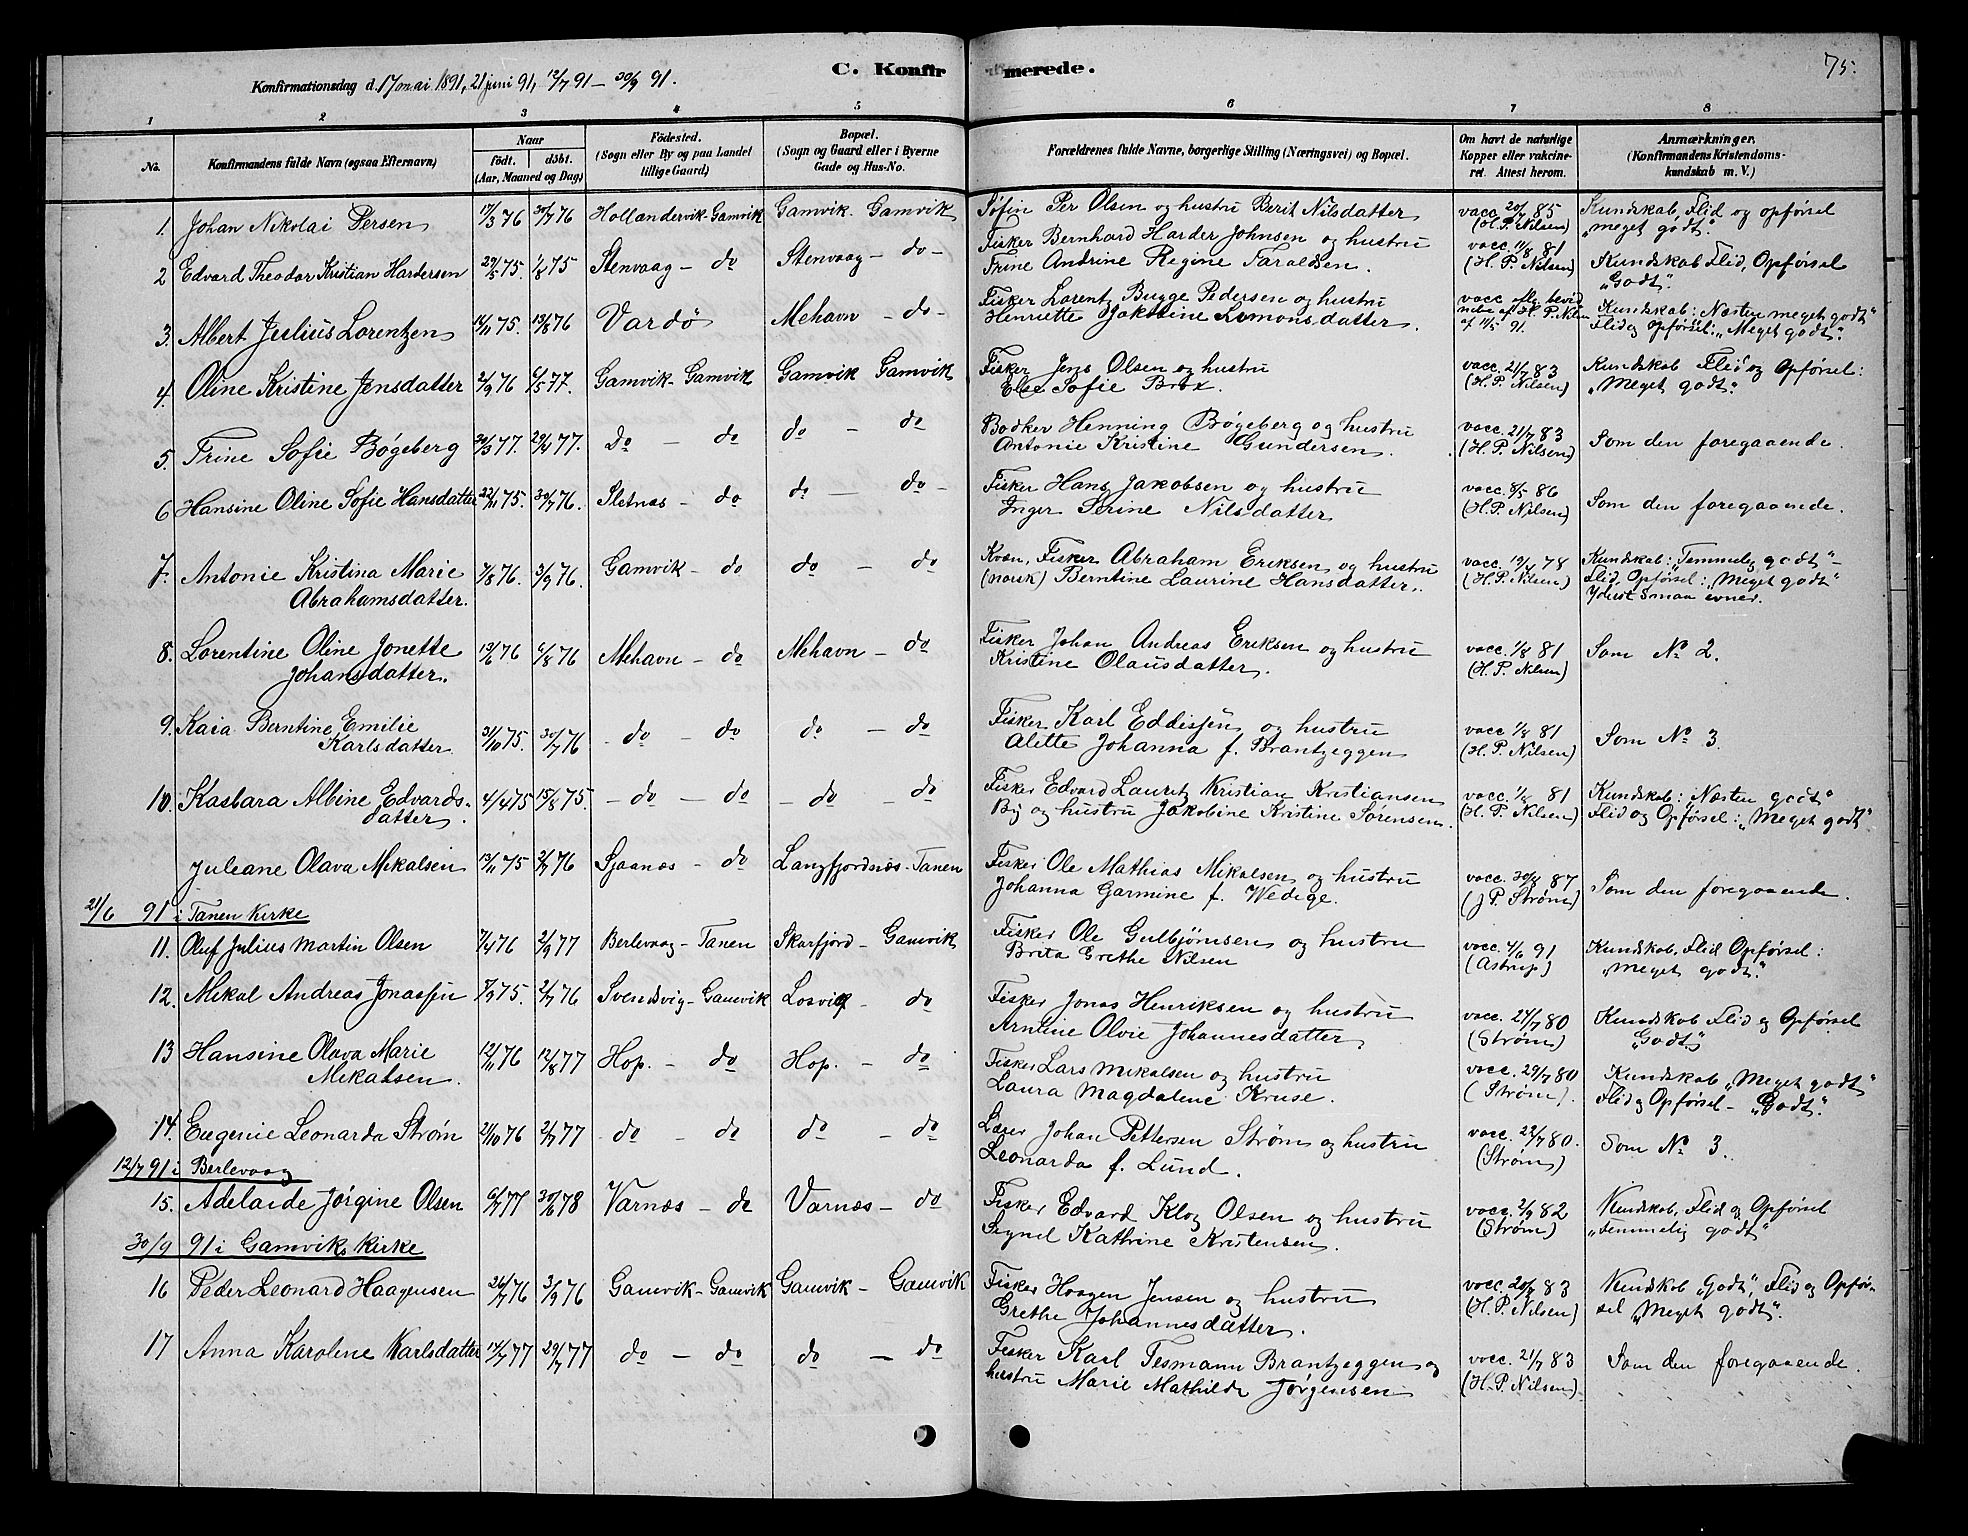 75.
C. Konfirmerede.
Konfirmationsdag d. 17 mai 1891, 21 juni 91, 12/7 91 – 30/9 91.
1 2 3 4 5 6 7 8
No. Konfirmandens fulde Navn (ogsaa Efternavn) Naar födt. döbt. (Aar, Maaned og Dag) Födested. (Sogn eller By og paa Landet tillige Gaard) Bopæl. (Sogn og Gaard eller i Byerne Gade og Hus-No. Forældrenes fulde Navne, borgerlige Stilling (Næringsvei) og Bopæl. Om havt de naturlige Kopper eller vakcineret. Attest herom. Anmærkninger. (Konfirmandens Kristendomskundskab m. V.)
1. Johan Nikolai Persen 17/3 76 30/7 76 Hollændervik - Gamvik Gamvik - Gamvik Søfin Per Olsen og hustru Berit Nilsdatter vacc. 20/7 85 (H. P. Nilsen) Kundskab, Flid og opførsel "meget godt".
2 Edvard Theodor Kristian Hardersen 29/5 75. 1/8 75 Stenvaag - do Stenvaag - do - Fisker Bernhard Harder Johnsen og hustru
Trine Andrine Regine Taraldsen. vacc. 11/8 81 (H. P. Nilsen) Kundskab Flid, Opførsel "Godt".
3. Albert Julius Lorentzen 14/11 75. 13/8 76 Vardö Mehavn - do - Fisker Lorentz Bugge Pedersen og hustru
Henriette Jakobine Simonsdatter. vacc. af H. P. Nilsen af 11/5 91. Kundskab: "Næsten meget godt"
Flid og opførsel: "Meget godt".
4. Oline Kristine Jensdatter 2/9 76 6/5 77. Gamvik - Gamvik Gamvik Gamvik Fisker Jens Olsen og hustru
Else Sofie Brox. vacc. 21/7 83 (H. P. Nilsen) Kundskab Flid og Opførsel:
"Meget godt".
5. Trine Sofie Bøgeberg 30/3 77. 29/4 77. Do - do do - do Bødker Henning Bøgeberg og hustru
Antonie Kristine Gundersen. vacc. 21/7 83 (H. P. Nilsen) Som den foregaaende.
6 Hansine Oline Sofie Hansdatter 22/11 75. 30/7 76. Sletnæs - do do - do - Fisker Hans Jakobsen og hustru
Inger Serine Nilsdatter vacc. 8/5 86 (H. P. Nilsen) Som den foregaaende.
7. Antonie Kristina Marie
Abrahamsdatter. 7/8 76. 3/9 76. Gamvik - do do - do Kvæn, Fisker Abraham Eriksen og hustru
(norsk) Berntine Laurine Hansdatter. vacc. 19/4 78 (H. P. Nilsen) Kundskab: "Temmelig godt" -
Flid, Opførsel: "Meget godt"
Yderst smaa evner.
8. Lorentine Oline Jonette
Johansdatter. 13/6 76 6/8 76 Mehavn - do Mehavn - do Fisker Johan Andreas Eriksen og hustru
Kristine Olausdatter. vacc. 1/8 81 (H. P. Nilsen) Som No 2.
9. Kaia Berntine Emilie
Karlsdatter 31/10 75. 30/7 76 - do - do do - do Fisker Karl Eddissen og hustru
Alette Johanna f. Brantzeggen vacc 1/8 81 (H. P. Nilsen) Som No 3.
10. Kasbara Albine Edvards-
datter. 4/4 75 15/8 75. - do - do - do - do Fisker Edvard Lauritz Kristian Kristiansen
By og hustru Jakobine Kristine Sørensen. vacc. 1/8 81 (H. P. Nilsen) Kundskab: "Næsten godt"
Flid og Opførsel: "Meget godt".
Juleane Olava Mikalsen 13/11 75 2/7 76 Sjaanæs - do Langfjordnæs - Tanen Fisker Ole Mathias Mikalsen og hustru
Johanna Garmine f. Wedige. vacc. 30/4 87 (J P. Strøm) Som den foregaaende.
21/6 91 i Tanen Kirke
11. Oluf Julius Martin Olsen 7/4 76 2/9 77 Berlevaag - Tanen Skarfjord - Gamvik Fisker Ole Gulbjørnsen og hustru
Brita Grethe Nilsen vacc. 4/6 91 (Astrup) Kundskab, Flid Opførsel:
"meget godt".
12. Mikal Andreas Jonassen 7/9 75. 2/7 76 Svendsvig - Gamvik Losvig - do Fisker Jonas Henriksen og hustru
Arntine Olvie Johannesdatter vacc. 27/7 80 (Strøm) Kundskab Flid og Opførsel
"Godt"
13 Hansine Olava Marie
Mikalsen. 12/11 76 12/8 77 Hop. - do Hop. - do Fisker Lars Mikalsen og hustru
Laura Magdalene Kruse. vacc. 29/7 80 (Strøm). Kundskab "Meget godt"
Flid og Opførsel - "Godt".
14. Eugenie Leonarda Strøm 21/10 76 2/7 77 do - do do - do Lærer Johan Pettersen Strøm og hustru
Leonarda f. Lund. vacc. 22/7 80. (Strøm) Som No 3.
12/7 91 i Berlevaag
15. Adelaide Jørgine Olsen 6/7 77 30/6 78 Varnæs - do Varnæs - do Fisker Edvard Klog Olsen og hustru
Signel Kathrine Kristensen. vacc. 2/9 82 (Strøm) Kundskab, Flid og Opførsel
"temmelig godt"
30/9 91 i Gamvik Kirke
16 Peder Leonard Haagensen 26/7 76 3/9 76 Gamvik - Gamvik Gamvik - Gamvik Fisker Haagen Jensen og hustru
Grethe Johannesdatter. vacc. 20/7 83 (H. P. Nilsen) Kundskab "Godt", Flid og Opfør-
sel "Meget godt".
17 Anna Karoline Karlsdatter 12/7 77 29/7 77 do - do do - do Fisker Karl Tesmann Brantzeggen og
hustru Marie Mathilde Jørgensen vacc. 21/7 83 (H. P. Nilsen) Som den foregaaende.